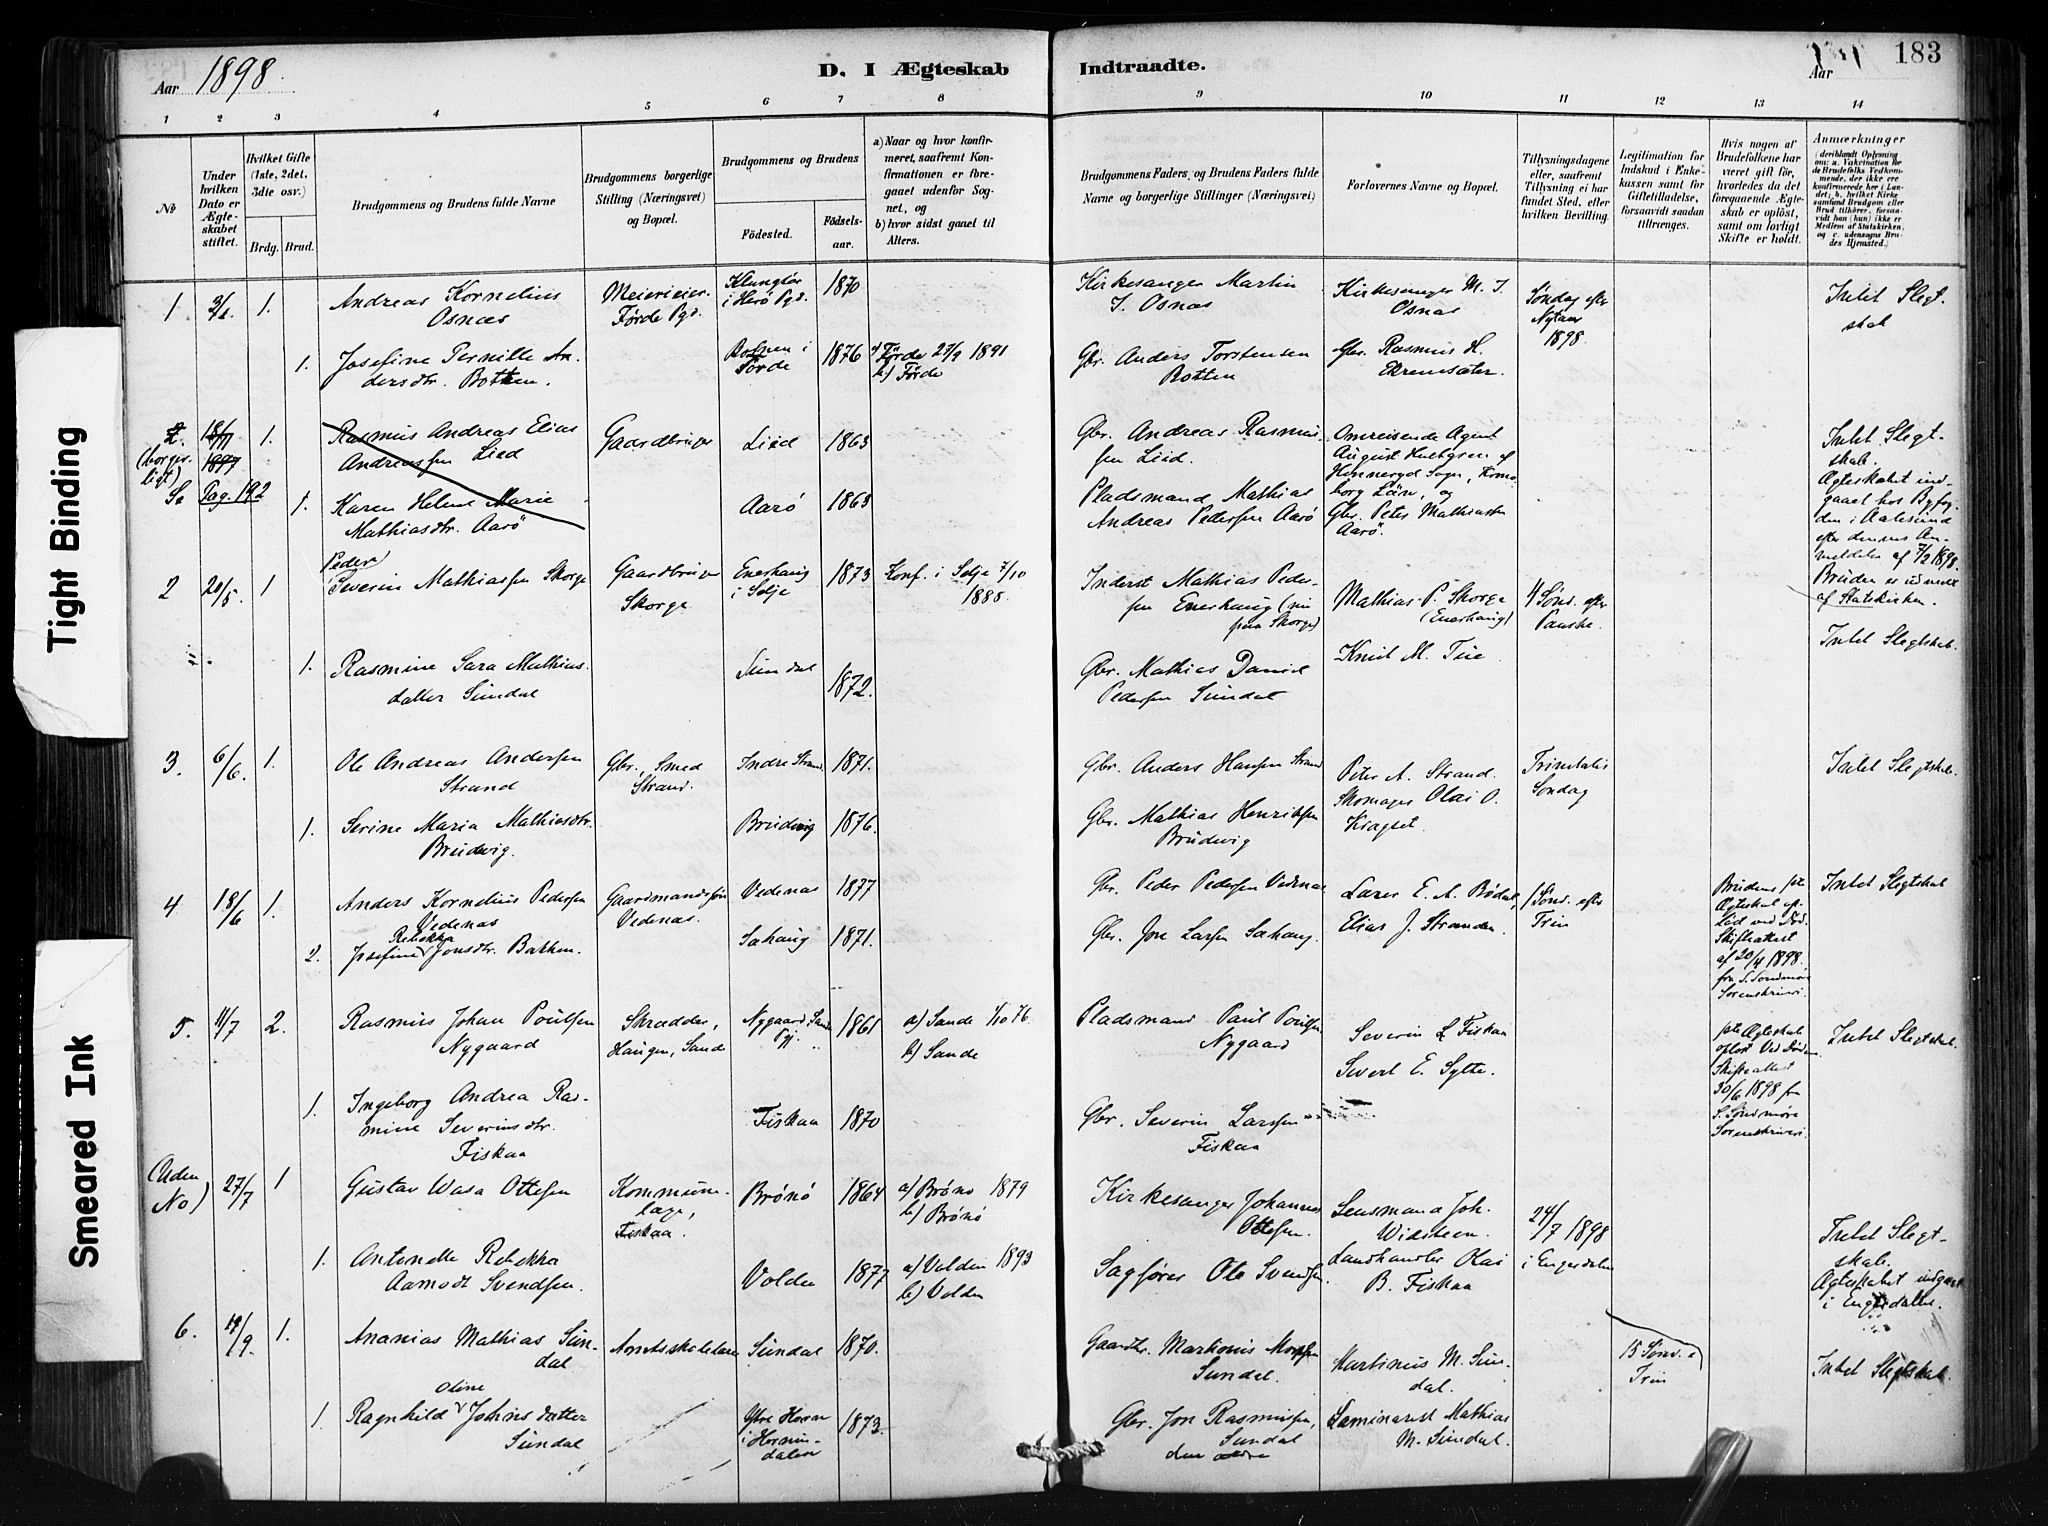 Aar 1898.
D. I Ægteskab
Indtraadte.
Aar
183
1 2 3 4 5 6 7 8 9 10 11 12 13 14
No
Under hvilken Dato er Ægteskabet stiftet.
Hvilket Gifte (1ste, 2det, 3dte osv.)
Brdg. Brud.
Brudgommens og Brudens fulde Navne
Brudgommens borgerlige Stilling (Næringsvei) og Bopæl.
Brudgommens og Brudens
Födested.
Födselsaar.
a) Naar og hvor konfirmeret, saafremt Konfirmationen er foregaaet udenfor Sognet, og
b) hvor sidst gaaet til Alters.
Brudgommens Faders og Brudens Faders fulde Navne og borgerlige Stillinger (Næringsvei)
Forlovernes Navne og Bopæl.
Tillysningsdagene eller, saafremt Tillysning ei har fundet Sted, efter hvilken Bevilling.
Legitimation for Indskud i Enkekassen samt for Giftetilladelse, forsaavidt saadan tiltrænges.
Hvis nogen af Brudefolkene har været gift før, hvorledes da det foregaaende Ægteskab er oplöst, samt om lovligt Skifte er holdt.
Anmærkninger
Tight Binding
Smeared Ink
1 1. Andreas Kornelius Osnæs
Meierieier. Førde Pgs.
i Herø Pgs. 1870
Kirkesanger Martin I. Osnæs
Kirkesanger M. I. Osnæs
Søndag efter Nytaar 1898.
Intet Slegtskab
1. Josefine Pernille Andersdtr. Botten.
Botnen i Førde 1876
a) Førde 27/9 1891
b) Førde
Gbr. Anders Torstensen Botten
Gbr. Rasmus H. Ekremsæter.
(borgerligt) 18/11 1897 1.
Se Pag. 192
Rasmus Andreas Elias Andreassen Lied
Gaardbruger Lied 1863
Gbr. Andreas Rasmussen Lied.
Omreisende Agent August
Sogn,
Län, og
Gbr. Peter Mathiassen Aarö.
Intet Slegtskab.
Ægteskabet indgaaet hos Byfogden i Aalesund efter dennes Anmeldelse af 7/2 1898.
Bruden er udmeldt af Statskirken.
1. Karen Helene Marie Mathiasdtr. Aarö
Aarö 1863
Pladsmand Mathias Andreas Pedersen Aarö
2 20/5 1 Peder Severin Mathiassen Skorge
Gaardbruger Skorge
Enerhaug i Selje 1873
Konf. i Selje 7/10 1888.
Inderst Mathias Pedersen Enerhaug (nu paa Skorge)
Mathias P. Skorge (Enerhaug)
4 Sønd. efter Paaske.
Intet Slegtskab.
1. Rasmine Sara Mathiasdatter Sundal
Sundal 1872.
Gbr. Mathias Daniel Pedersen Sundal
Knut M. Tue
3. 6/6. 1. Ole Andreas Andersen Strand
Gbr., Smed Strand.
Indre Strand 1871.
Gbr. Anders Hansen Strand
Peter A. Strand.
Trinitatis Søndag
Intet Slegtskab.
1. Serine Maria Mathiasdtr. Brudevig.
Brudevig 1876.
Gbr. Mathias Henriksen Brudevig
Skomager Olai O. Kragset.
4 18/6 1. Anders Kornelius Pedersen Vedenæs
Gaardmandssøn Vedenæs.
Vedenæs 1877
Gbr. Peder Pedersen Vedenæs
Larer E. A. Bødal,
1 Sønd. efter Trin
Brudens 1ste Ægteskab opløst ved Død. Skifteattest af 20/4 1898. fra S. Søndmøre Sorenskriveri.
Intet Slegtskab
2. Josefine Rebekka Jonsdtr. Bakken.
Sæhaug 1871.
Gbr. Jon Larsen Sæhaug.
Elias J. Stranden.
5. 11/7 2. Rasmus Johan Poulsen Nygaard
Skrædder, Haugen, Sande
Nygaard Sande Pgj. 1861
a) Sande 1/10 76
b) Sande
Pladsmand Paul Poulsen Nygaard
Severin L Fiskaa
Sivert E. Sylte.
1ste Ægteskab opløst Ved Døden. Skifteattest 30/6 1898 fra S. Søndmøre Sorenskriveri
Intet Slegtskab.
1. Ingeborg Andrea Rasmine Severinsdtr. Fiskaa
Fiskaa 1870
Gbr. Severin Larssen Fiskaa
(Uden No) 27/7 1 Gustav Wasa Ottesen
Kommunelæge, Fiskaa.
Brønø 1864
a) Brønø 1879
b) Brønø
Kirkesanger Johannes Ottesen.
Lensmand Joh. Widsteen.
24/7 1898 i Engerdalen
Intet Slegtskab.
Ægteskabet indgaaet i Engerdalen.
1. Antonette Rebekka Aamodt Svendsen.
Volden 1877
a) Volden 1893
b) Volden
Sagfører Ole Svendsen.
Landhandler Olai B. Fiskaa
6. 19/9. 1. Ananias Mathias Sundal
Amtsskolelærer Sundal 1870.
Gaardbr. Markonius Sundal.
Martinius M. Sundal.
15 Sønd. e Trin
Intet Slegtskab.
1. Ragnhild Oline Johnsdatter Sundal
Ytre Horne i Hornindalen 1873.
Gbr. Jon Rasmussen, Sundal den ældre
Seminarist Mathias M. Sundal.